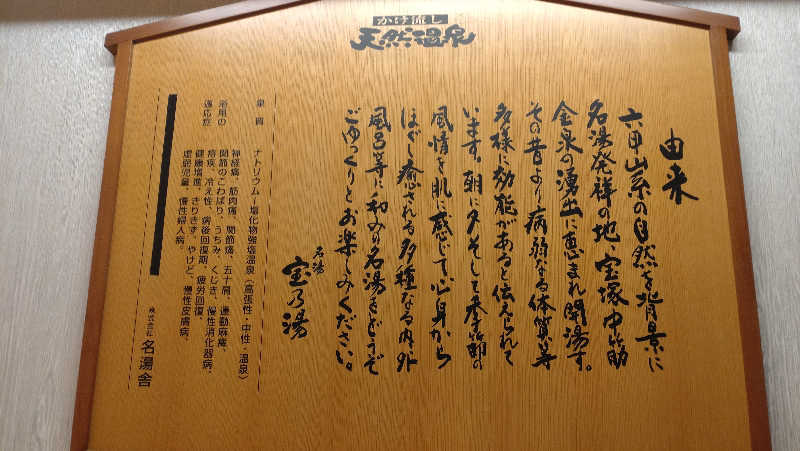 かけ流し
天然温泉
由来
六甲山系の自然を背景に
名湯発祥の地、宝塚中筋
金泉の湧出に恵まれ開湯す。
その昔より病弱なる体質等
多様に効能があると伝えられて
います。朝に夕そして季節の
風情を肌に感じて心身から
ほぐし癒される多種なる内、外
風呂等に和みの名湯をどうで
ごゆっくりとお楽しみください。
名湯 宝乃湯
泉質 ナトリウムー塩化物強塩温泉(高張性・中性・温泉)
浴用の適応症
神経痛、筋肉痛、関節痛、五十肩、運動麻痺、
関節のこわばり、うちみ、くじき、慢性消化器病、
痔疾、冷え性、病後回復期、疲労回復、
健康増進、きりきず、やけど、慢性皮膚病、
虚弱児童、慢性婦人病。
株式会社 名湯舎